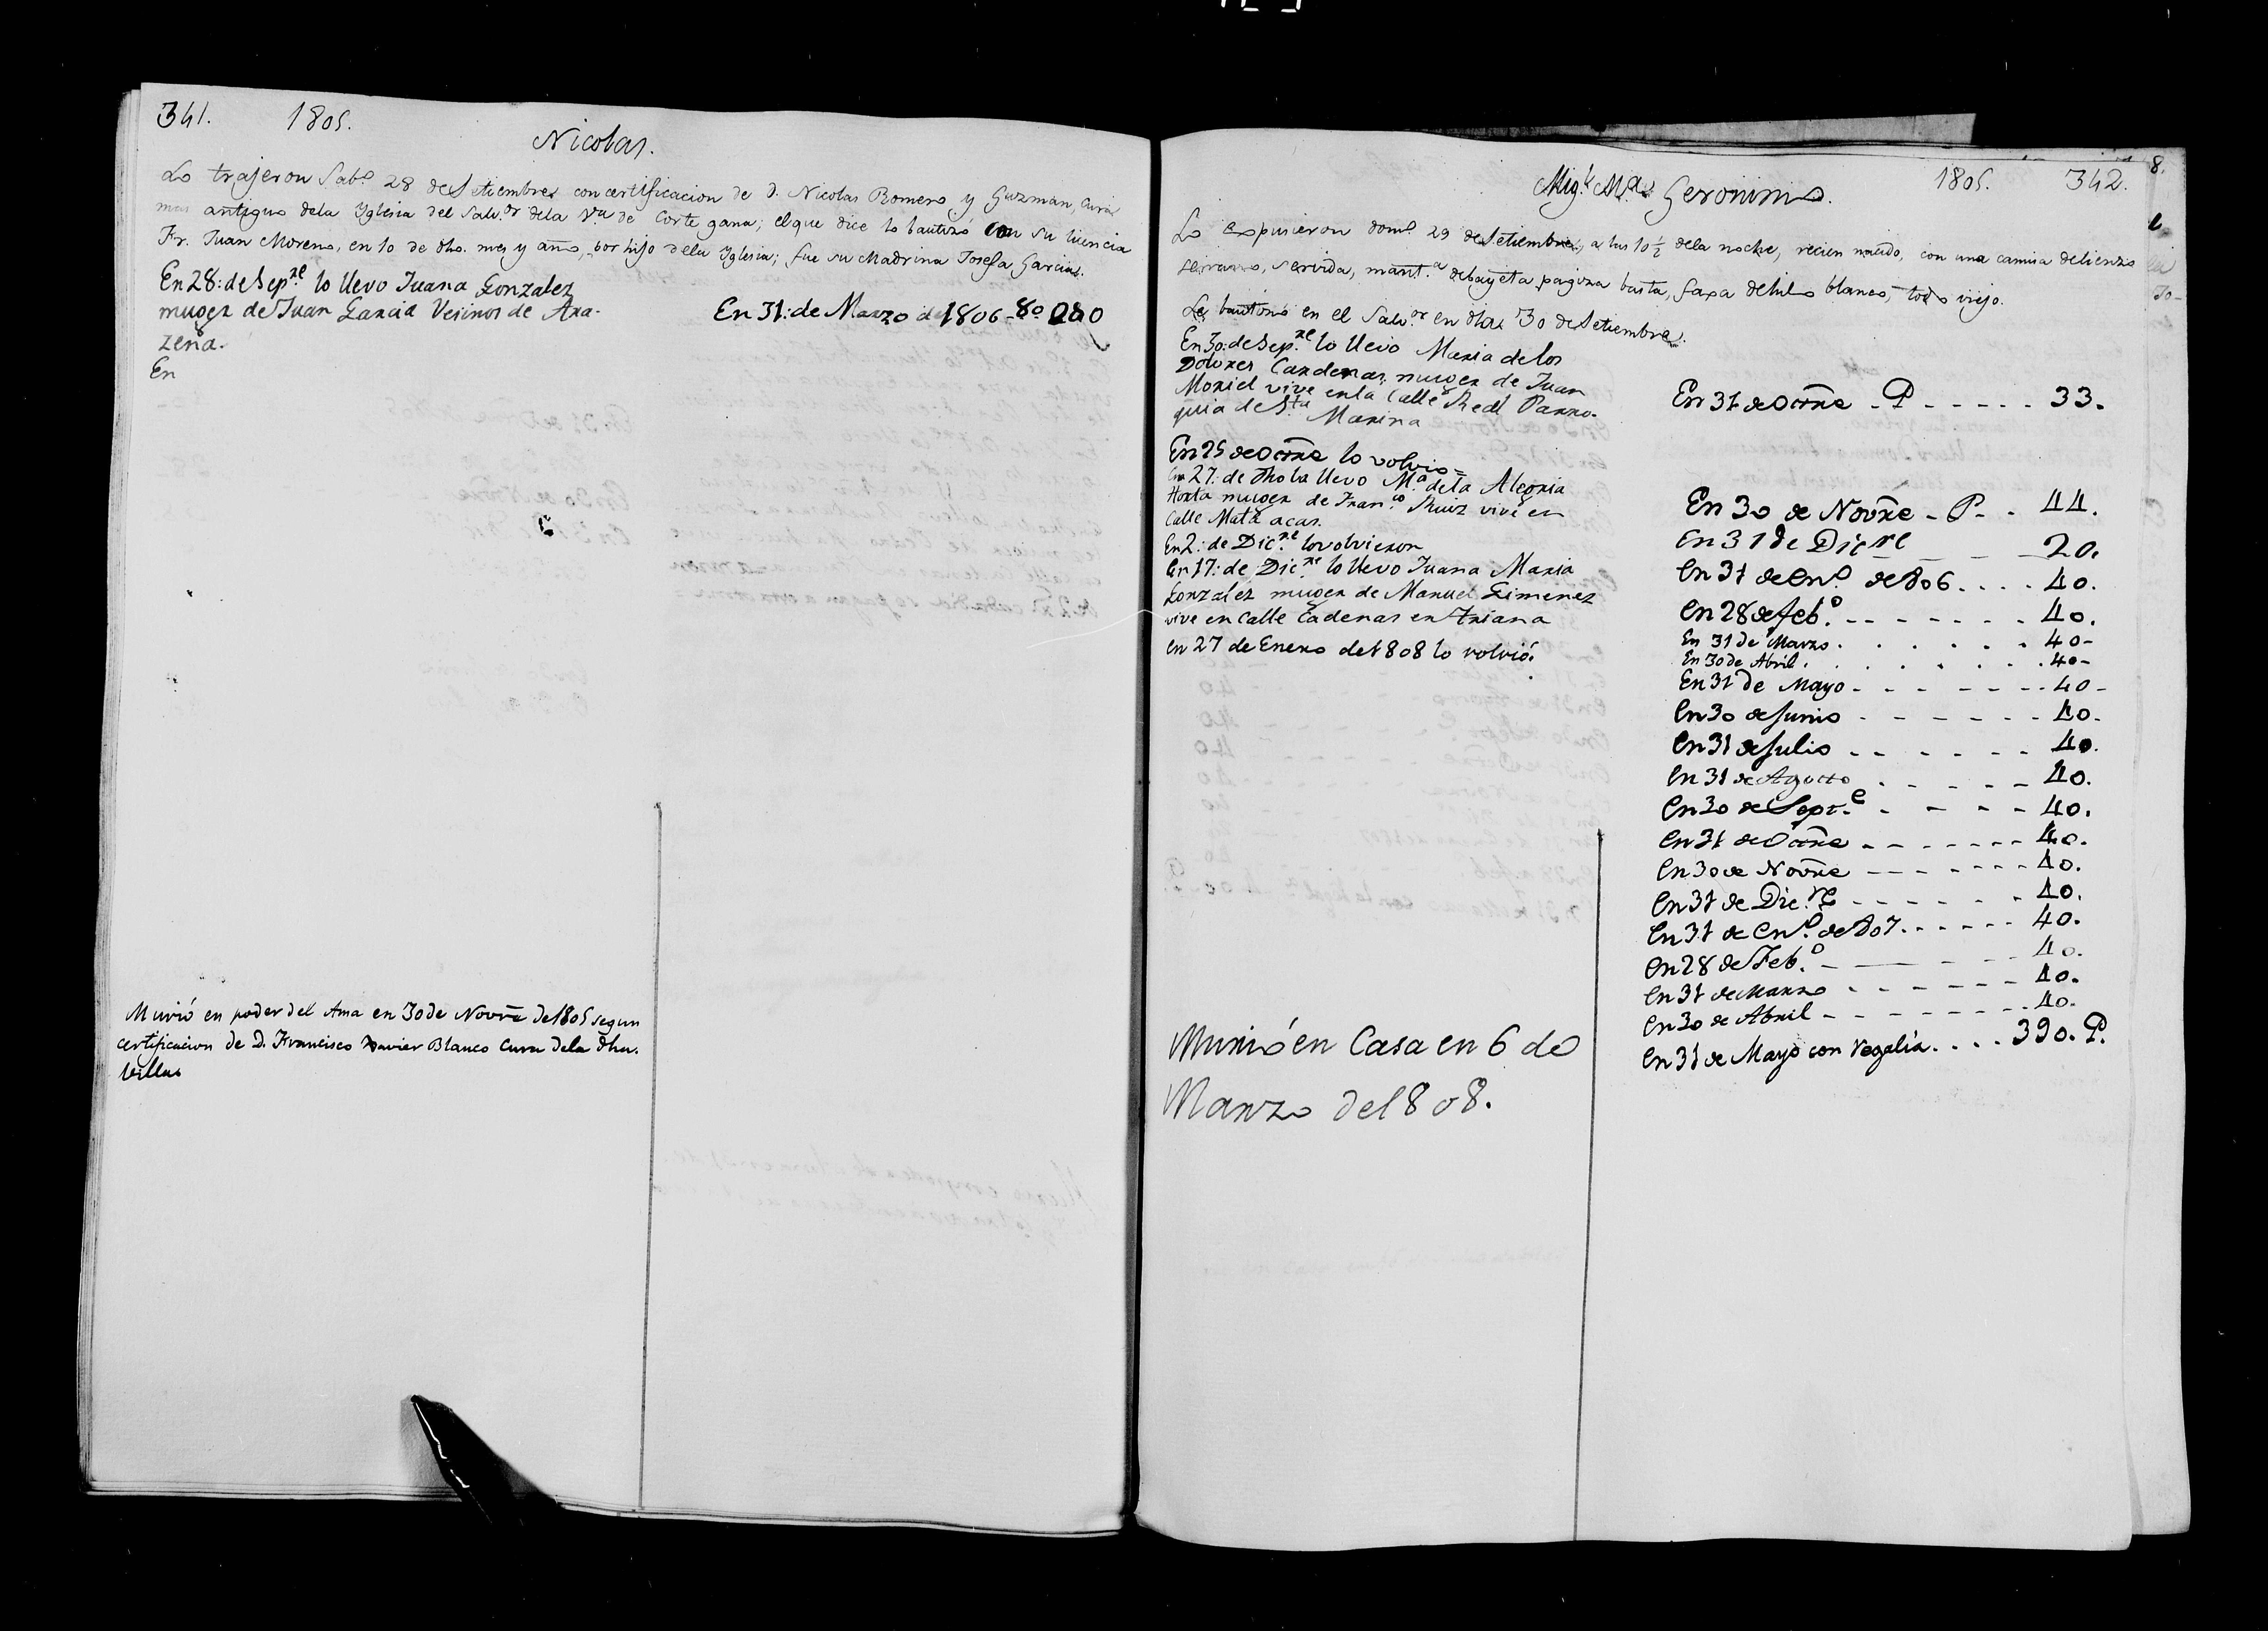 341. 1805.
Nicolas.
Lo trajeron Sab.º 28 de Setiembre con certificacion de d. Nicolas Romero y Guzman, cura
mas antiguo dela Yglesia del Salv.or dela V.a de Cortegana; el que dice lo bautizó con su licencia
Fr. Juan Moreno, en 10 de dho. mes y año, por hijo dela Yglesia; fue su Madrina Josefa Garcias.
En 28: de Sep.re lo llevo Juana Gonzalez
muger de Juan Garcia Vesinos de Ara-
zena.
En
En 31: de Marzo de 1806 - 80
Murió en poder del Ama en 30 de Novre de 1805 segun
certificacion de D. Francisco Xavier Blanco Cura dela dha.
Villa
1805. 342.
Mig.l M.a Geronimo.
Lo expusieron dom.º 29 de Setiembre, a las 10 ½ dela noche, recien nacido, con una camisa de lienzo
serrano, servida, mant.a de bayeta pagiza basta, faxa de hilo blanco, todo viejo.
Le bautonó en el Salv.or en dia 30 de Setiembre.
En 30: de Sep.re lo llevo Maria de los
Dolores Cardenas, muger de Juan
Moriel vive en la Calle Real Parro-
quia de S.ta Marina
En 25 de Octre lo volvio =
En 27: de dho la llevo M.a de la Alegria
Horta muger de Fran.co Ruiz vive en
Calle Mata acas.
En 2: de Dic.re lo volvieron
En 17: de Dic.re lo llevo Juana Maria
Gonzalez muger de Manuel Gimenez
vive en Calle Cadenas en Triana
en 27 de Enero de 1808 lo volvió.
Murió en Casa en 6 de
Marzo de 1808.
En 31 de Octre - P - - - - - 33.
En 30 de Novre - P - - 44.
En 31 de Dicre - - - 20.
En 31 de En.º de 806 . . . . 40.
En 28 de feb.º - - - - - - - 40.
En 31 de Marzo . . . . . . 40-
En 30 de Abril . . . . . . . 40-
En 31 de Mayo - - - - - - - 40-
En 30 de Junio - - - - - - - 40-
En 31 de Julio - - - - - - - 40.
En 31 de Agosto . - - - - 40.
En 30 de Sept.e - - - - - 40.
En 31 de Octre - - - - - - - 40.
En 30 de Novre - - - - - - - 40.
En 31 de Dic.re - - - - - - 40.
En 31 de En.º de 807 . . . . . . 40.
En 28 de Feb.º - - - - - 40.
En 31 de Marzo - - - - - - 40.
En 30 de Abril - - - - - - - - 40.
En 31 de Mayo con regalia . . . . 390. P.
8.